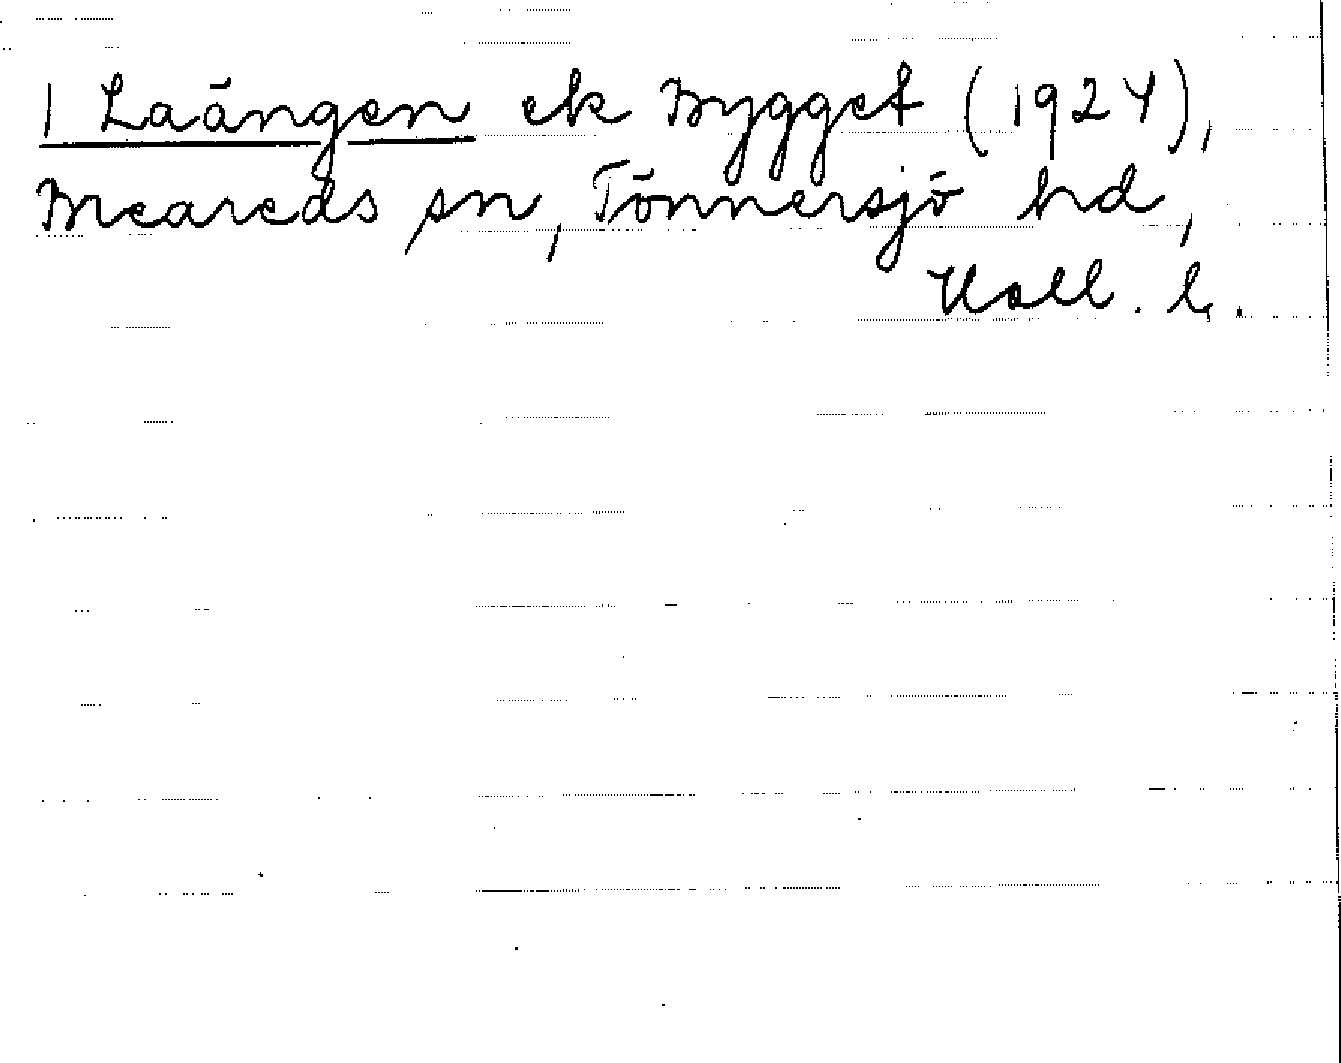 1 Laängen ek Bygget (1924),
Breareds sn, Tönnersjö hd,
Hall. l.